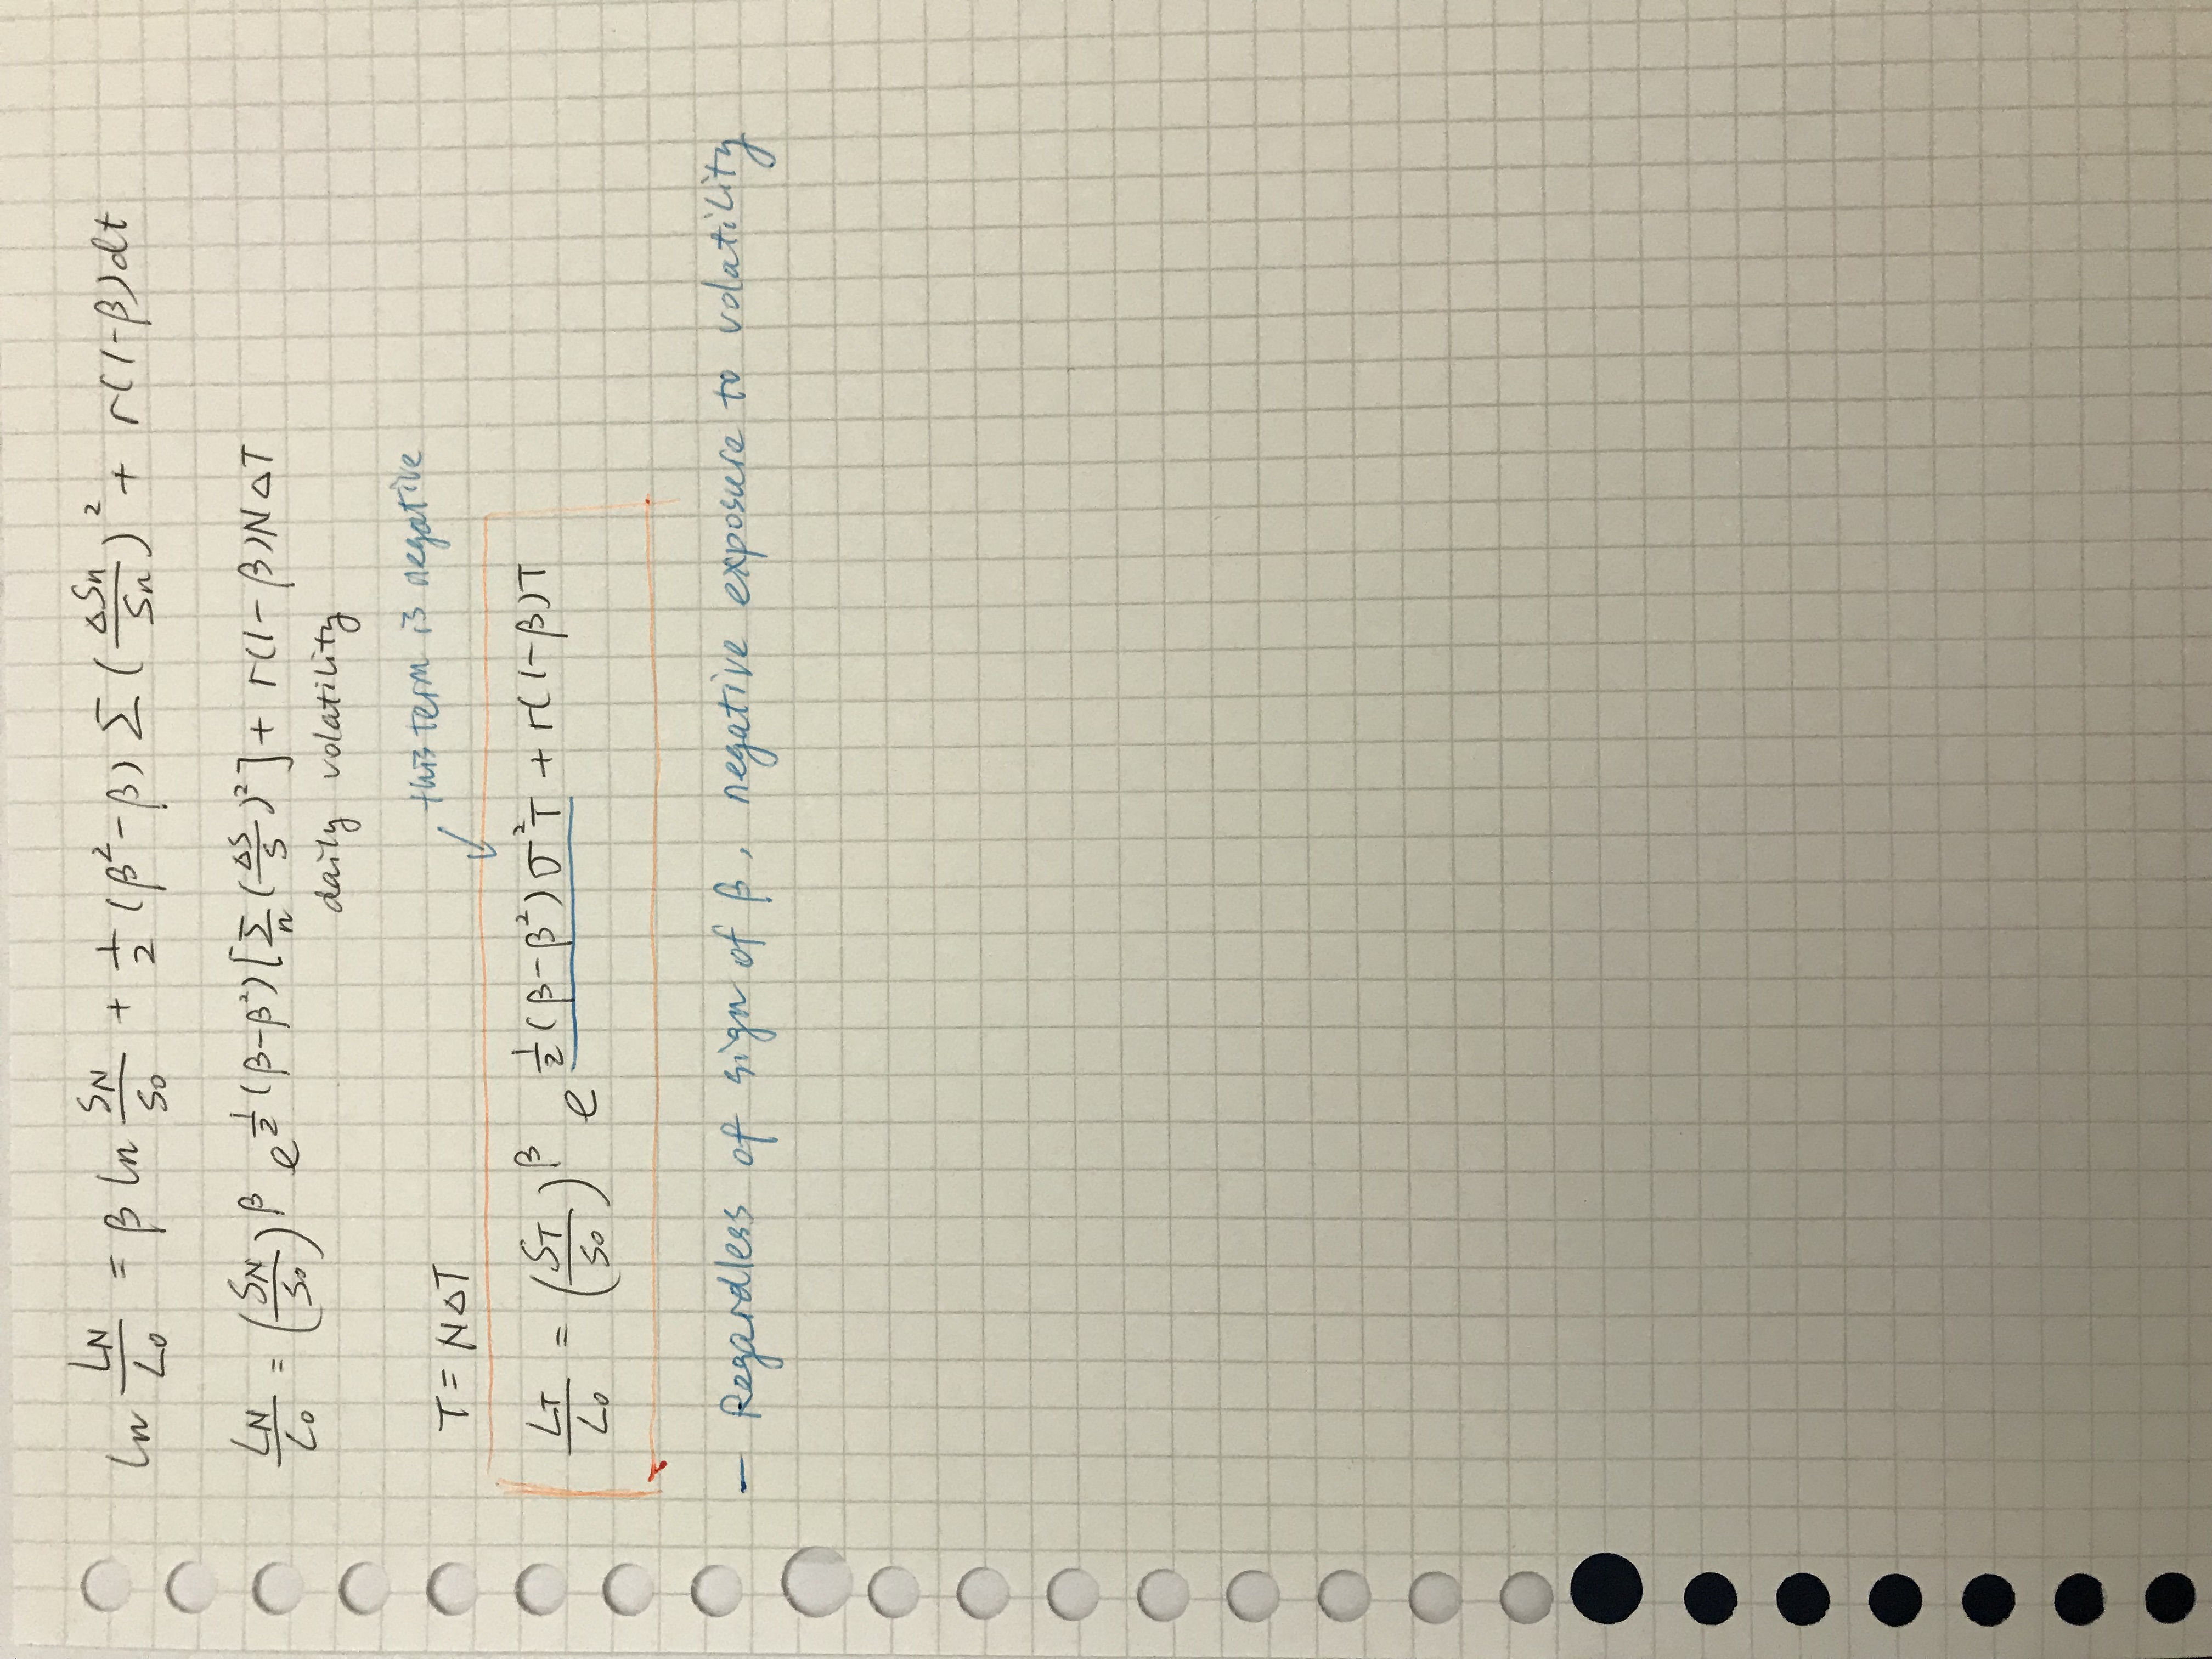 ln L_N/L_0 = β ln S_N/S_0 + 1/2 (β² - β) Σ (ΔS_n/S_n)² + r(1-β)dt
L_N/L_0 = (S_N/S_0)^β e^{1/2 (β-β²)[Σ_n (ΔS/S)²] + r(1-β)NΔT}
daily volatility
this term is negative
T = NΔT
L_T/L_0 = (S_T/S_0)^β e^{1/2 (β-β²)σ²T + r(1-β)T}
- Regardless of sign of β, negative exposure to volatility